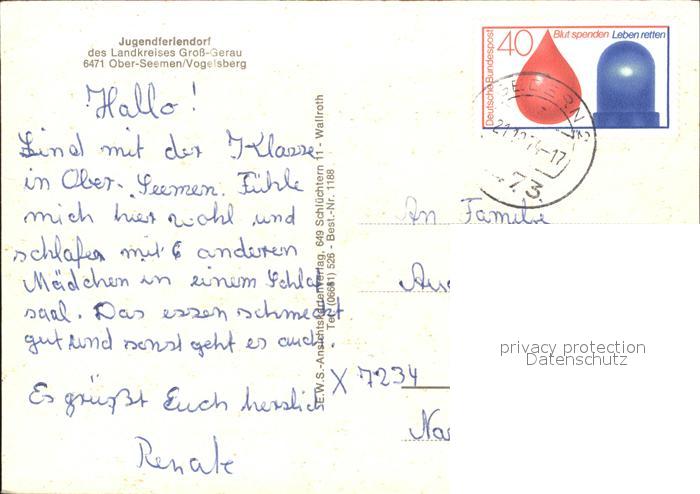 Jugendferiendorf
des Landkreises Groß-Gerau
6471 Ober-Seemen/Vogelsberg
Hallo!
Sind mit der Klasse
in Ober-Seemen. Fühle
mich hier wohl und
schlafen mit 6 anderen
Mädchen in einem Schlaf
saal. Das essen schmeckt
gut und sonst geht es auch.
Es grüßt Euch herzlich
Renate
E.W.S.-Ansichtskartenverlag, 649 Schlüchtern 11 - Wallroth
Tel. (06661) 526 - Best.-Nr. 1188
Deutsche Bundespost
40
Blut spenden Leben retten
73
An Familie
X 7234
privacy protection
Datenschutz